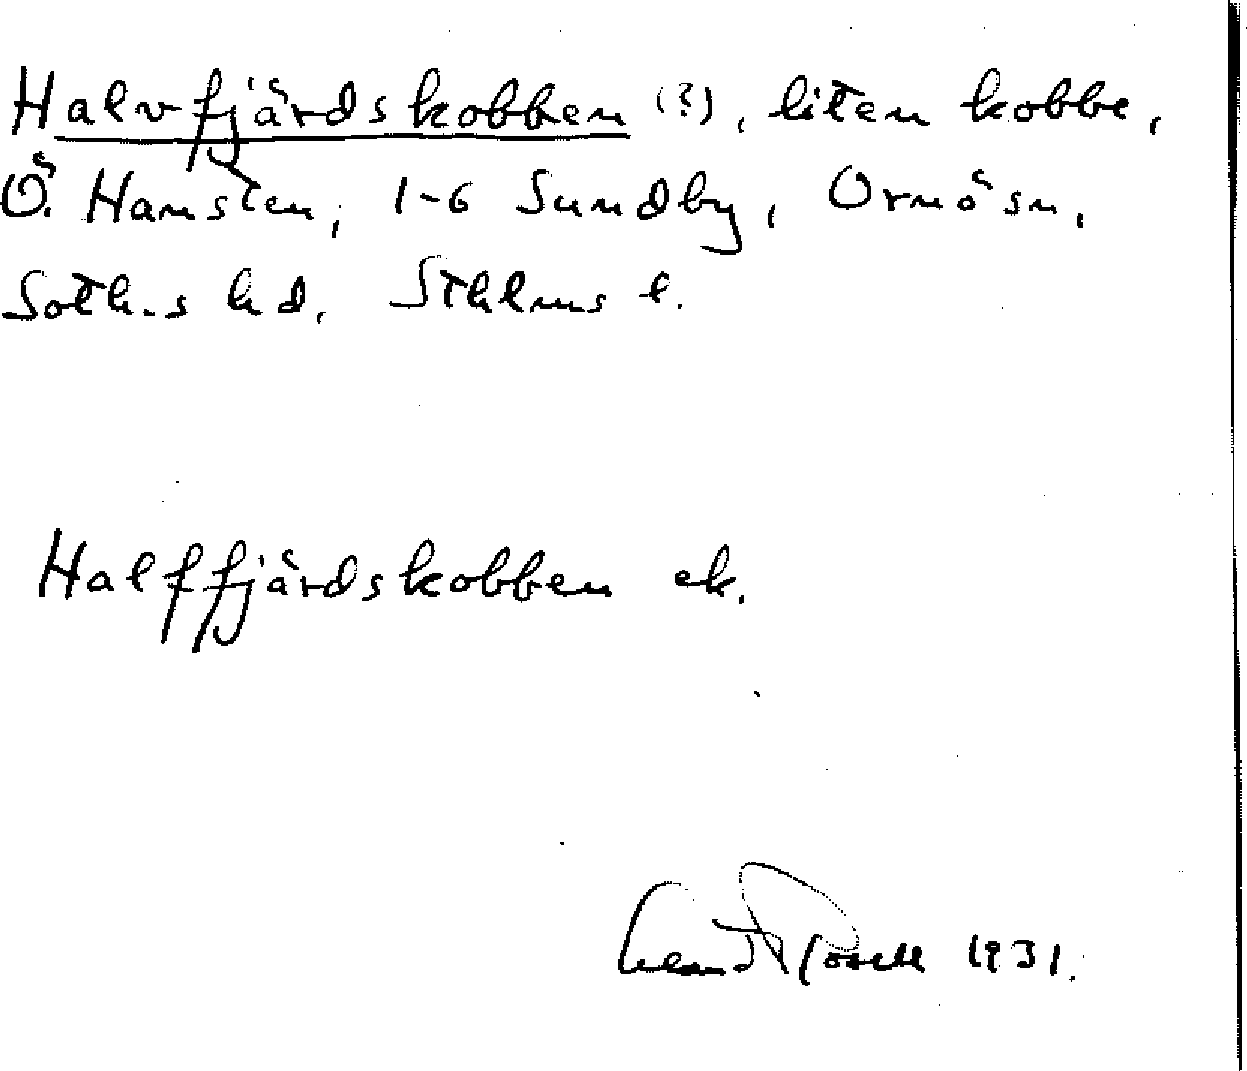 Halvfjärdskobben (?), liten kobbe,
Ö. Hansten, 1-6 Sundby, Ornösn,
Soth.s hd, Sthlms l.
Halffjärdskobben ek.
1931.